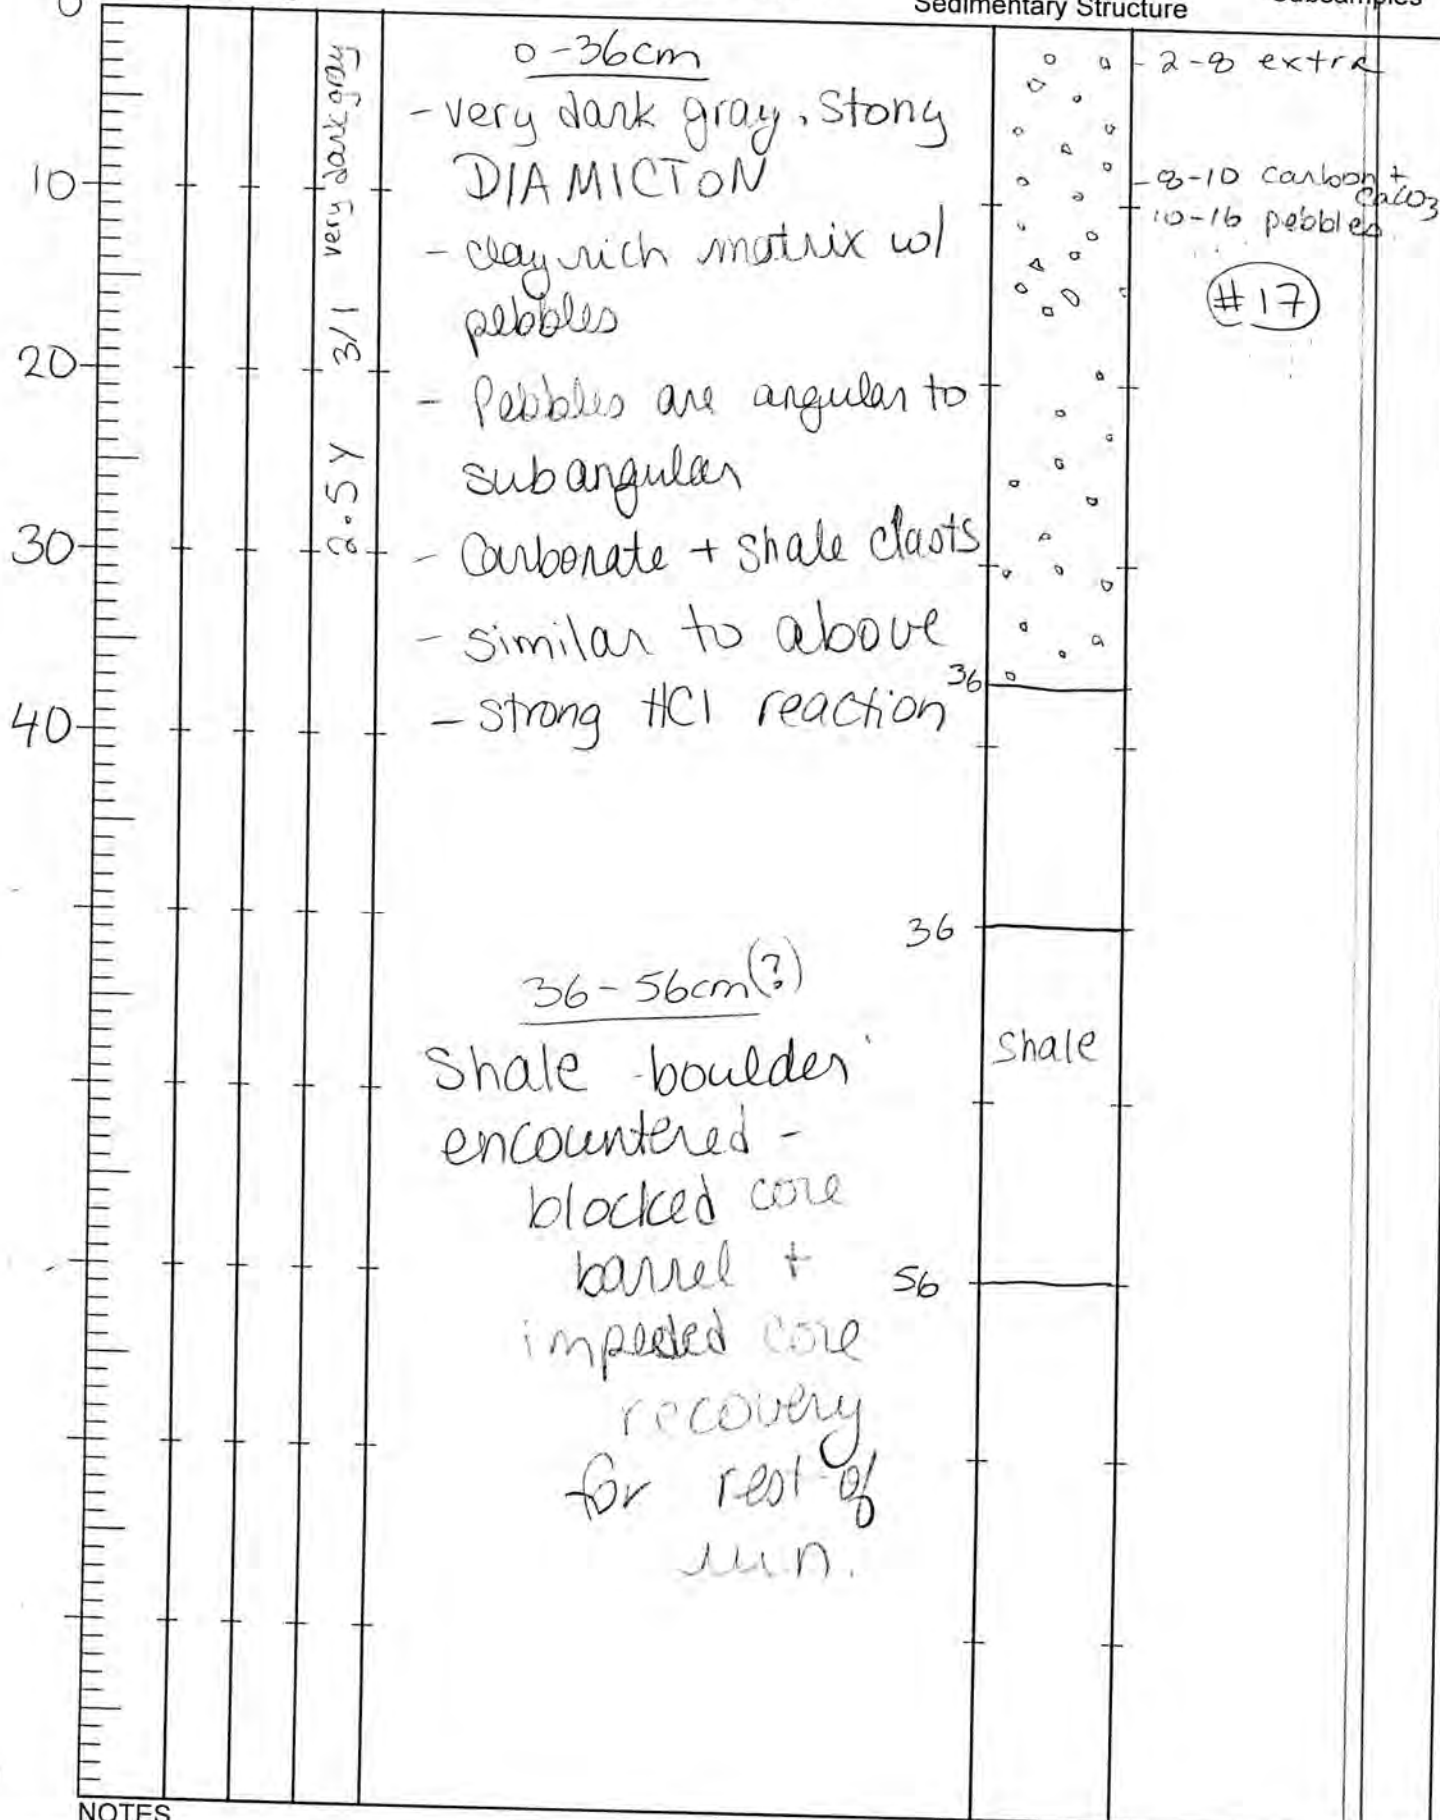 0
Sedimentary Structure
Subsamples
2.5Y 3/1 very dark gray
10
20
30
40
0-36cm
- very dark gray, stony
DIAMICTON
- clay rich matrix w/
pebbles
- Pebbles are angular to
subangular
- Carbonate + shale clasts
- similar to above
- strong HCl reaction
36
36
36-56cm(?)
Shale boulder
encountered -
blocked core
barrel +
impeded core
recovery
for rest of
run.
Shale
56
- 2-8 extra
- 8-10 carbon +
CaCO3
10-16 pebbles
#17
NOTES